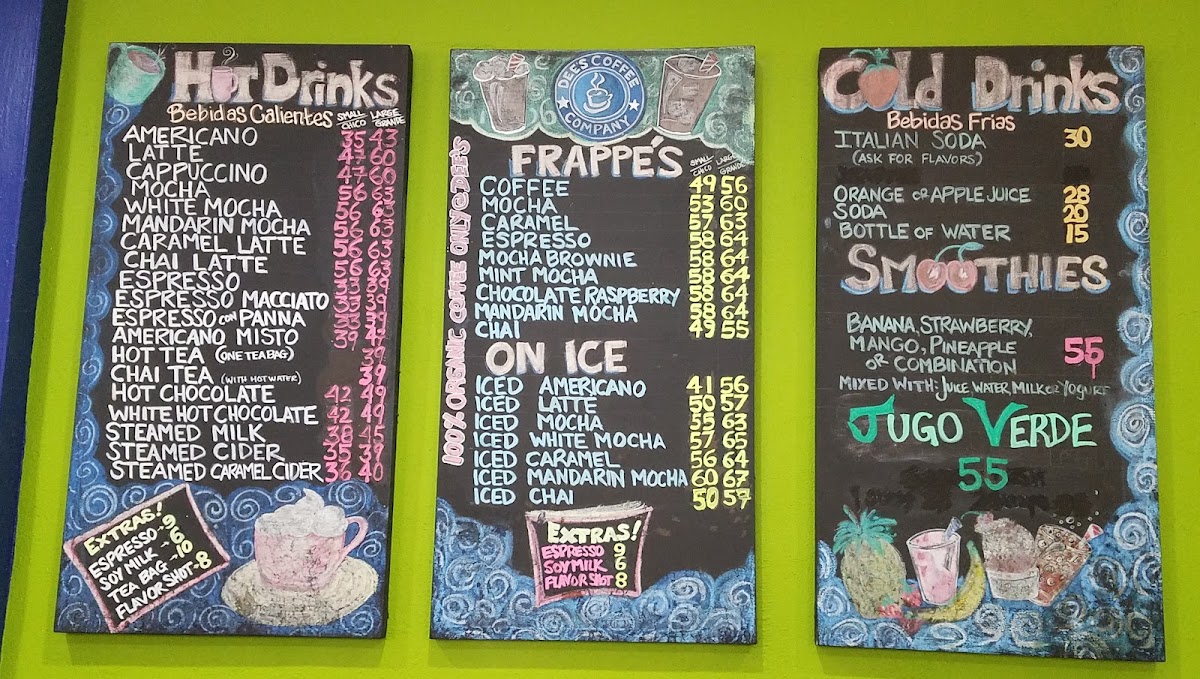 Hot Drinks
Bebidas Calientes
SMALL CHICO LARGE GRANDE
AMERICANO 35 43
LATTE 47 60
CAPPUCCINO 47 60
MOCHA 56 63
WHITE MOCHA 56 63
MANDARIN MOCHA 56 63
CARAMEL LATTE 56 63
CHAI LATTE 56 63
ESPRESSO 33 39
ESPRESSO MACCIATO 33 39
ESPRESSO CON PANNA 33 39
AMERICANO MISTO 39 47
HOT TEA (ONE TEA BAG) 39
CHAI TEA (WITH HOT WATER) 39
HOT CHOCOLATE 42 49
WHITE HOT CHOCOLATE 42 49
STEAMED MILK 38 45
STEAMED CIDER 35 39
STEAMED CARAMEL CIDER 36 40
EXTRAS!
ESPRESSO-9
SOY MILK-6
TEA BAG-10
FLAVOR SHOT-8
DEE'S COFFEE
COMPANY
FRAPPE'S
SMALL CHICO LARGE GRANDE
100% ORGANIC COFFEE ONLY @ DEE'S
COFFEE 49 56
MOCHA 53 60
CARAMEL 57 63
ESPRESSO 58 64
MOCHA BROWNIE 58 64
MINT MOCHA 58 64
CHOCOLATE RASPBERRY 58 64
MANDARIN MOCHA 58 64
CHAI 49 55
ON ICE
ICED AMERICANO 41 56
ICED LATTE 50 57
ICED MOCHA 55 63
ICED WHITE MOCHA 57 65
ICED CARAMEL 56 64
ICED MANDARIN MOCHA 60 67
ICED CHAI 50 57
EXTRAS!
ESPRESSO 9
SOY MILK 6
FLAVOR SHOT 8
Cold Drinks
Bebidas Frias
ITALIAN SODA 30
(ASK FOR FLAVORS)
ORANGE OR APPLE JUICE 28
SODA 20
BOTTLE OF WATER 15
SMOOTHIES
BANANA, STRAWBERRY,
MANGO, PINEAPPLE 55
OR COMBINATION
MIXED WITH: JUICE WATER, MILK OR YOGURT
JUGO VERDE
55